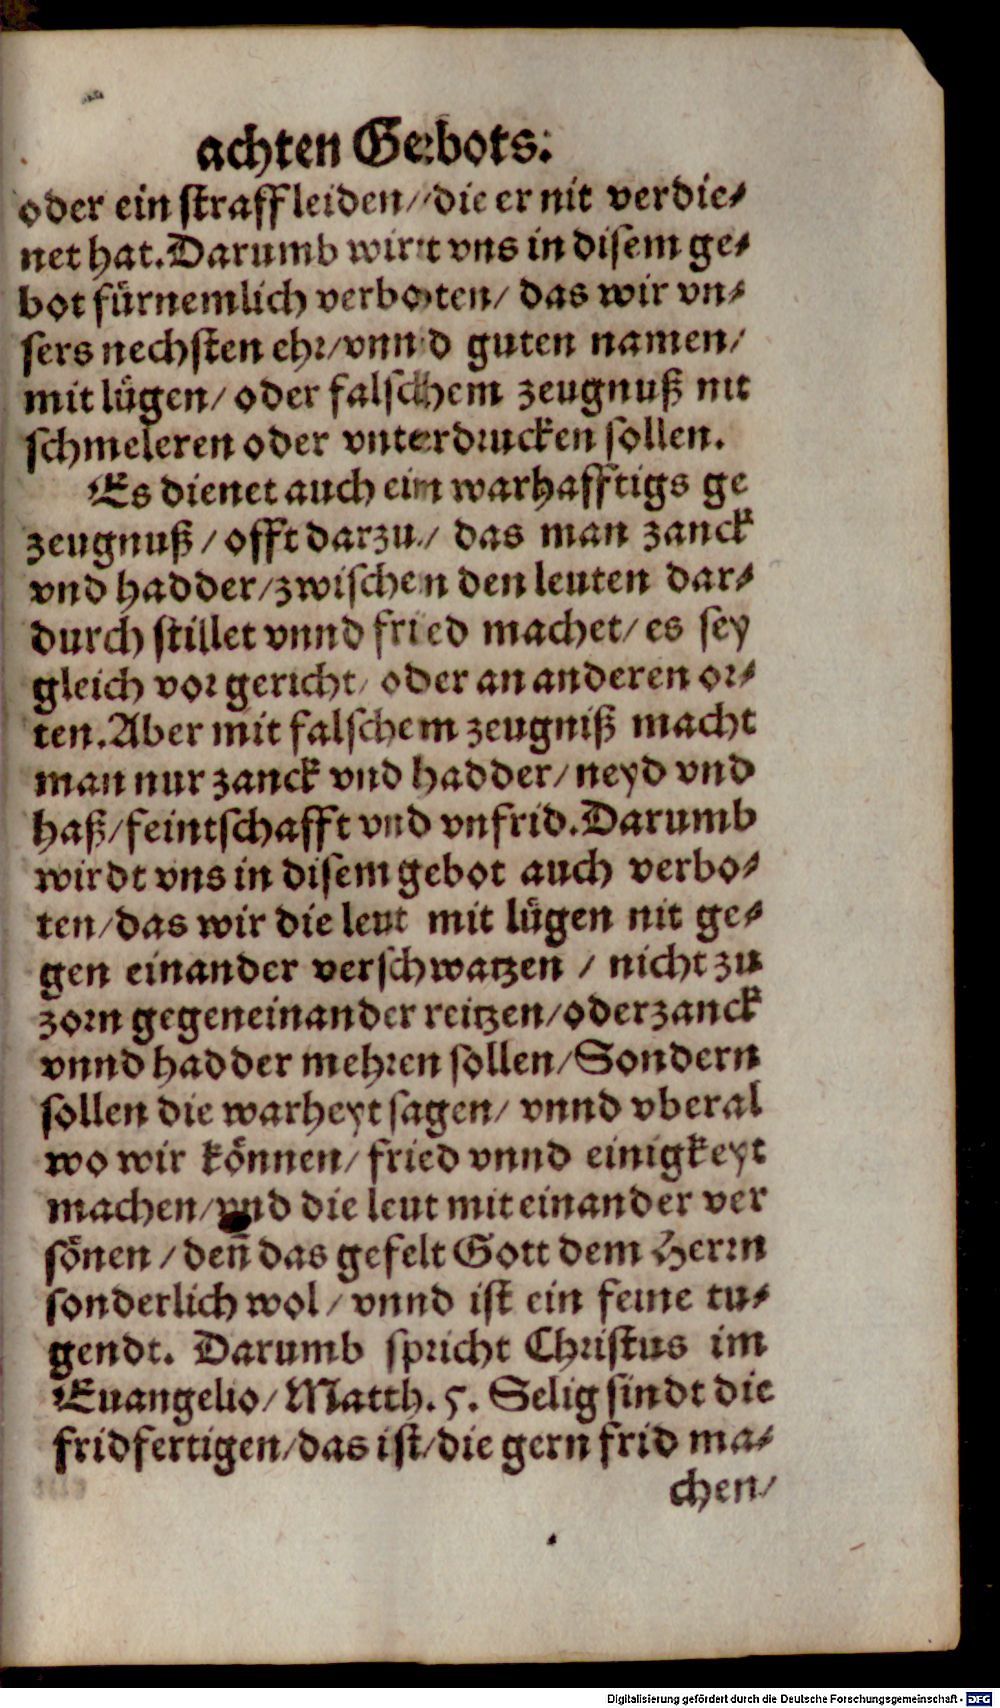 achten Gebots:
oder ein straff leiden/ die er nit verdie-
net hat. Darumb wirt vns in disem ge-
bot fürnemlich verboten/ das wir vn-
sers nechsten ehr/ vnnd guten namen/
mit lügen/ oder falschem zeugnuß nit
schmeleren oder vnterdrucken sollen.
Es dienet auch ein warhafftigs ge
zeugnuß / offt darzu/ das man zanck
vnd hadder/ zwischen den leuten dar-
durch stillet vnnd fried machet/ es sey
gleich vor gericht/ oder an anderen or-
ten. Aber mit falschem zeugniß macht
man nur zanck vnd hadder/ neyd vnd
haß/ feintschafft vnd vnfrid. Darumb
wirdt vns in disem gebot auch verbo-
ten/ das wir die leut mit lügen nit ge-
gen einander verschwatzen / nicht zu
zorn gegeneinander reitzen/ oder zanck
vnnd hadder mehren sollen/ Sondern
sollen die warheyt sagen/ vnnd vberal
wo wir können/ fried vnnd einigkeyt
machen/ vnd die leut mit einander ver
sönen / deñ das gefelt Gott dem Herrn
sonderlich wol / vnnd ist ein feine tu-
gendt. Darumb spricht Christus im
Euangelio/ Matth. 5. Selig sindt die
fridfertigen/ das ist/ die gern frid ma-
chen/
Digitalisierung gefördert durch die Deutsche Forschungsgemeinschaft - DFG